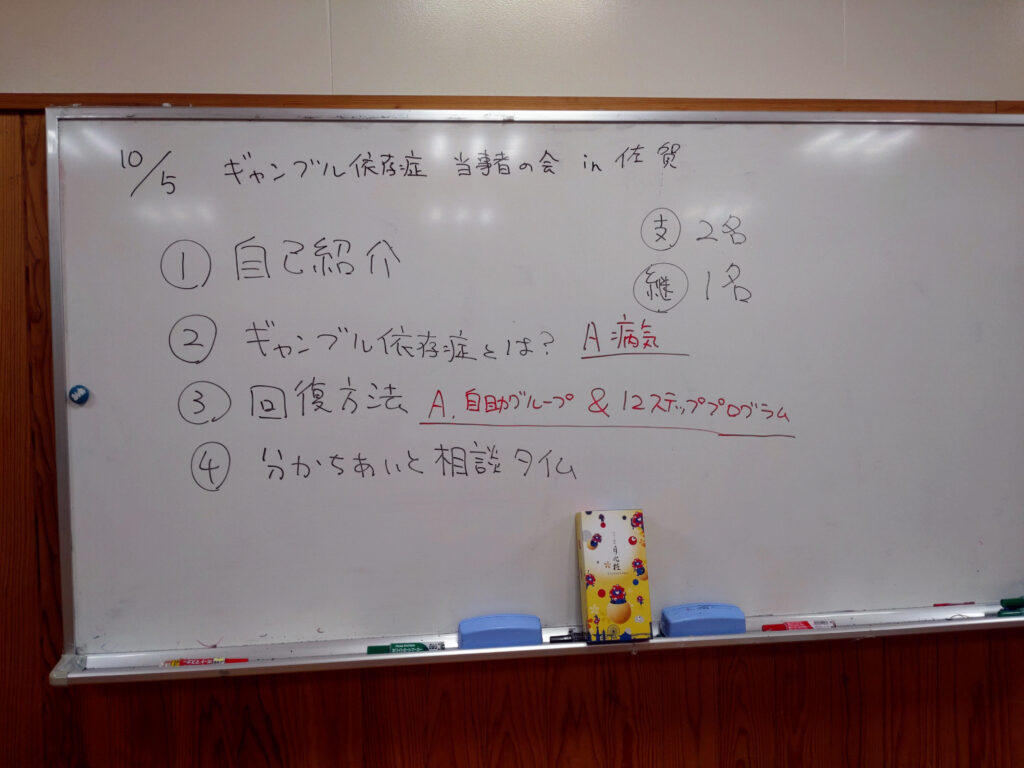 10/5 ギャンブル依存症 当事者の会 in 佐賀
支 2名
継 1名
① 自己紹介
② ギャンブル依存症とは? A 病気
③ 回復方法 A. 自助グループ & 12ステッププログラム
④ 分かちあいと相談タイム
月化粧